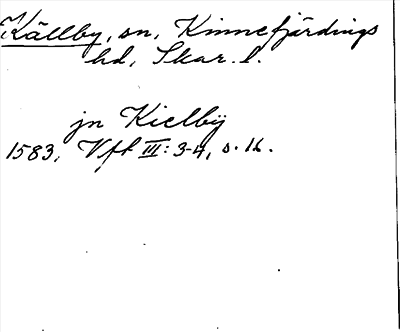 Källby, sn, Kinnefjärdings
hd, Skar. l.
jn Kielbÿ
1583, Vft III: 3-4, s. 16.